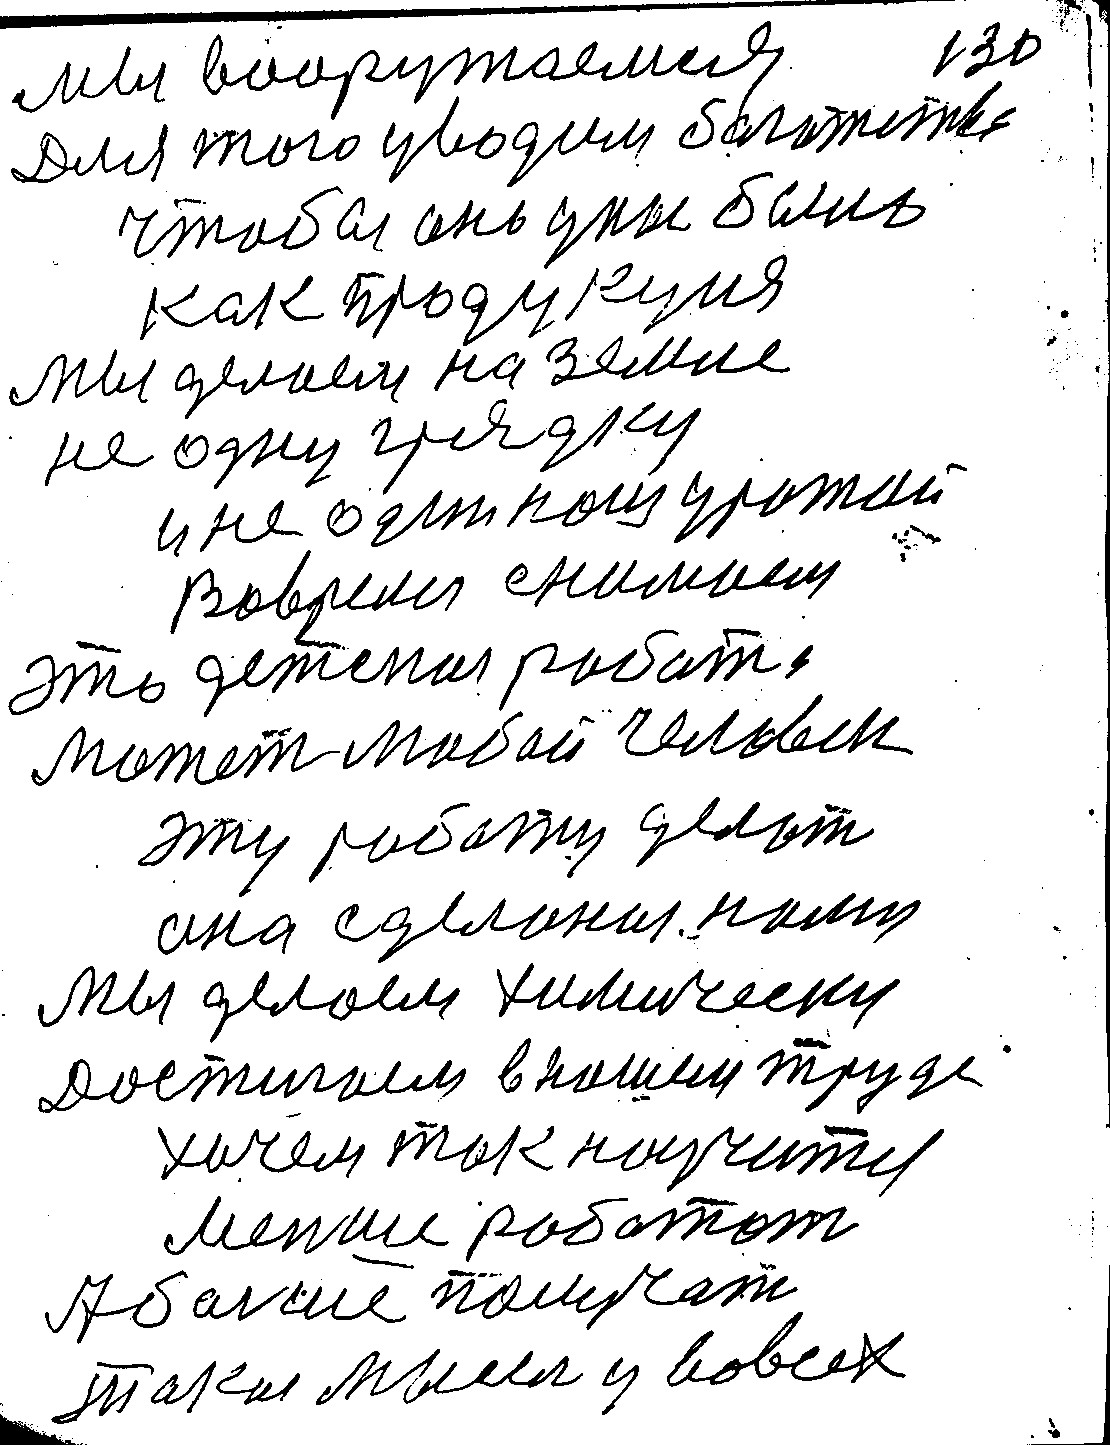 мы вооружаемся 130
Для того уводим богатство
чтобы онь у ны было
как продукция
Мы делаем на земле
не одну грядку
и не один наш урожай
Вовремя снимаем
Это детская работа
Может любой человек
эту работу делат
она сделана нами
Мы делаем химически
Достигаем в нашем труде
хочем так научится
менше работат
А болше получат
такая мысел у во всех